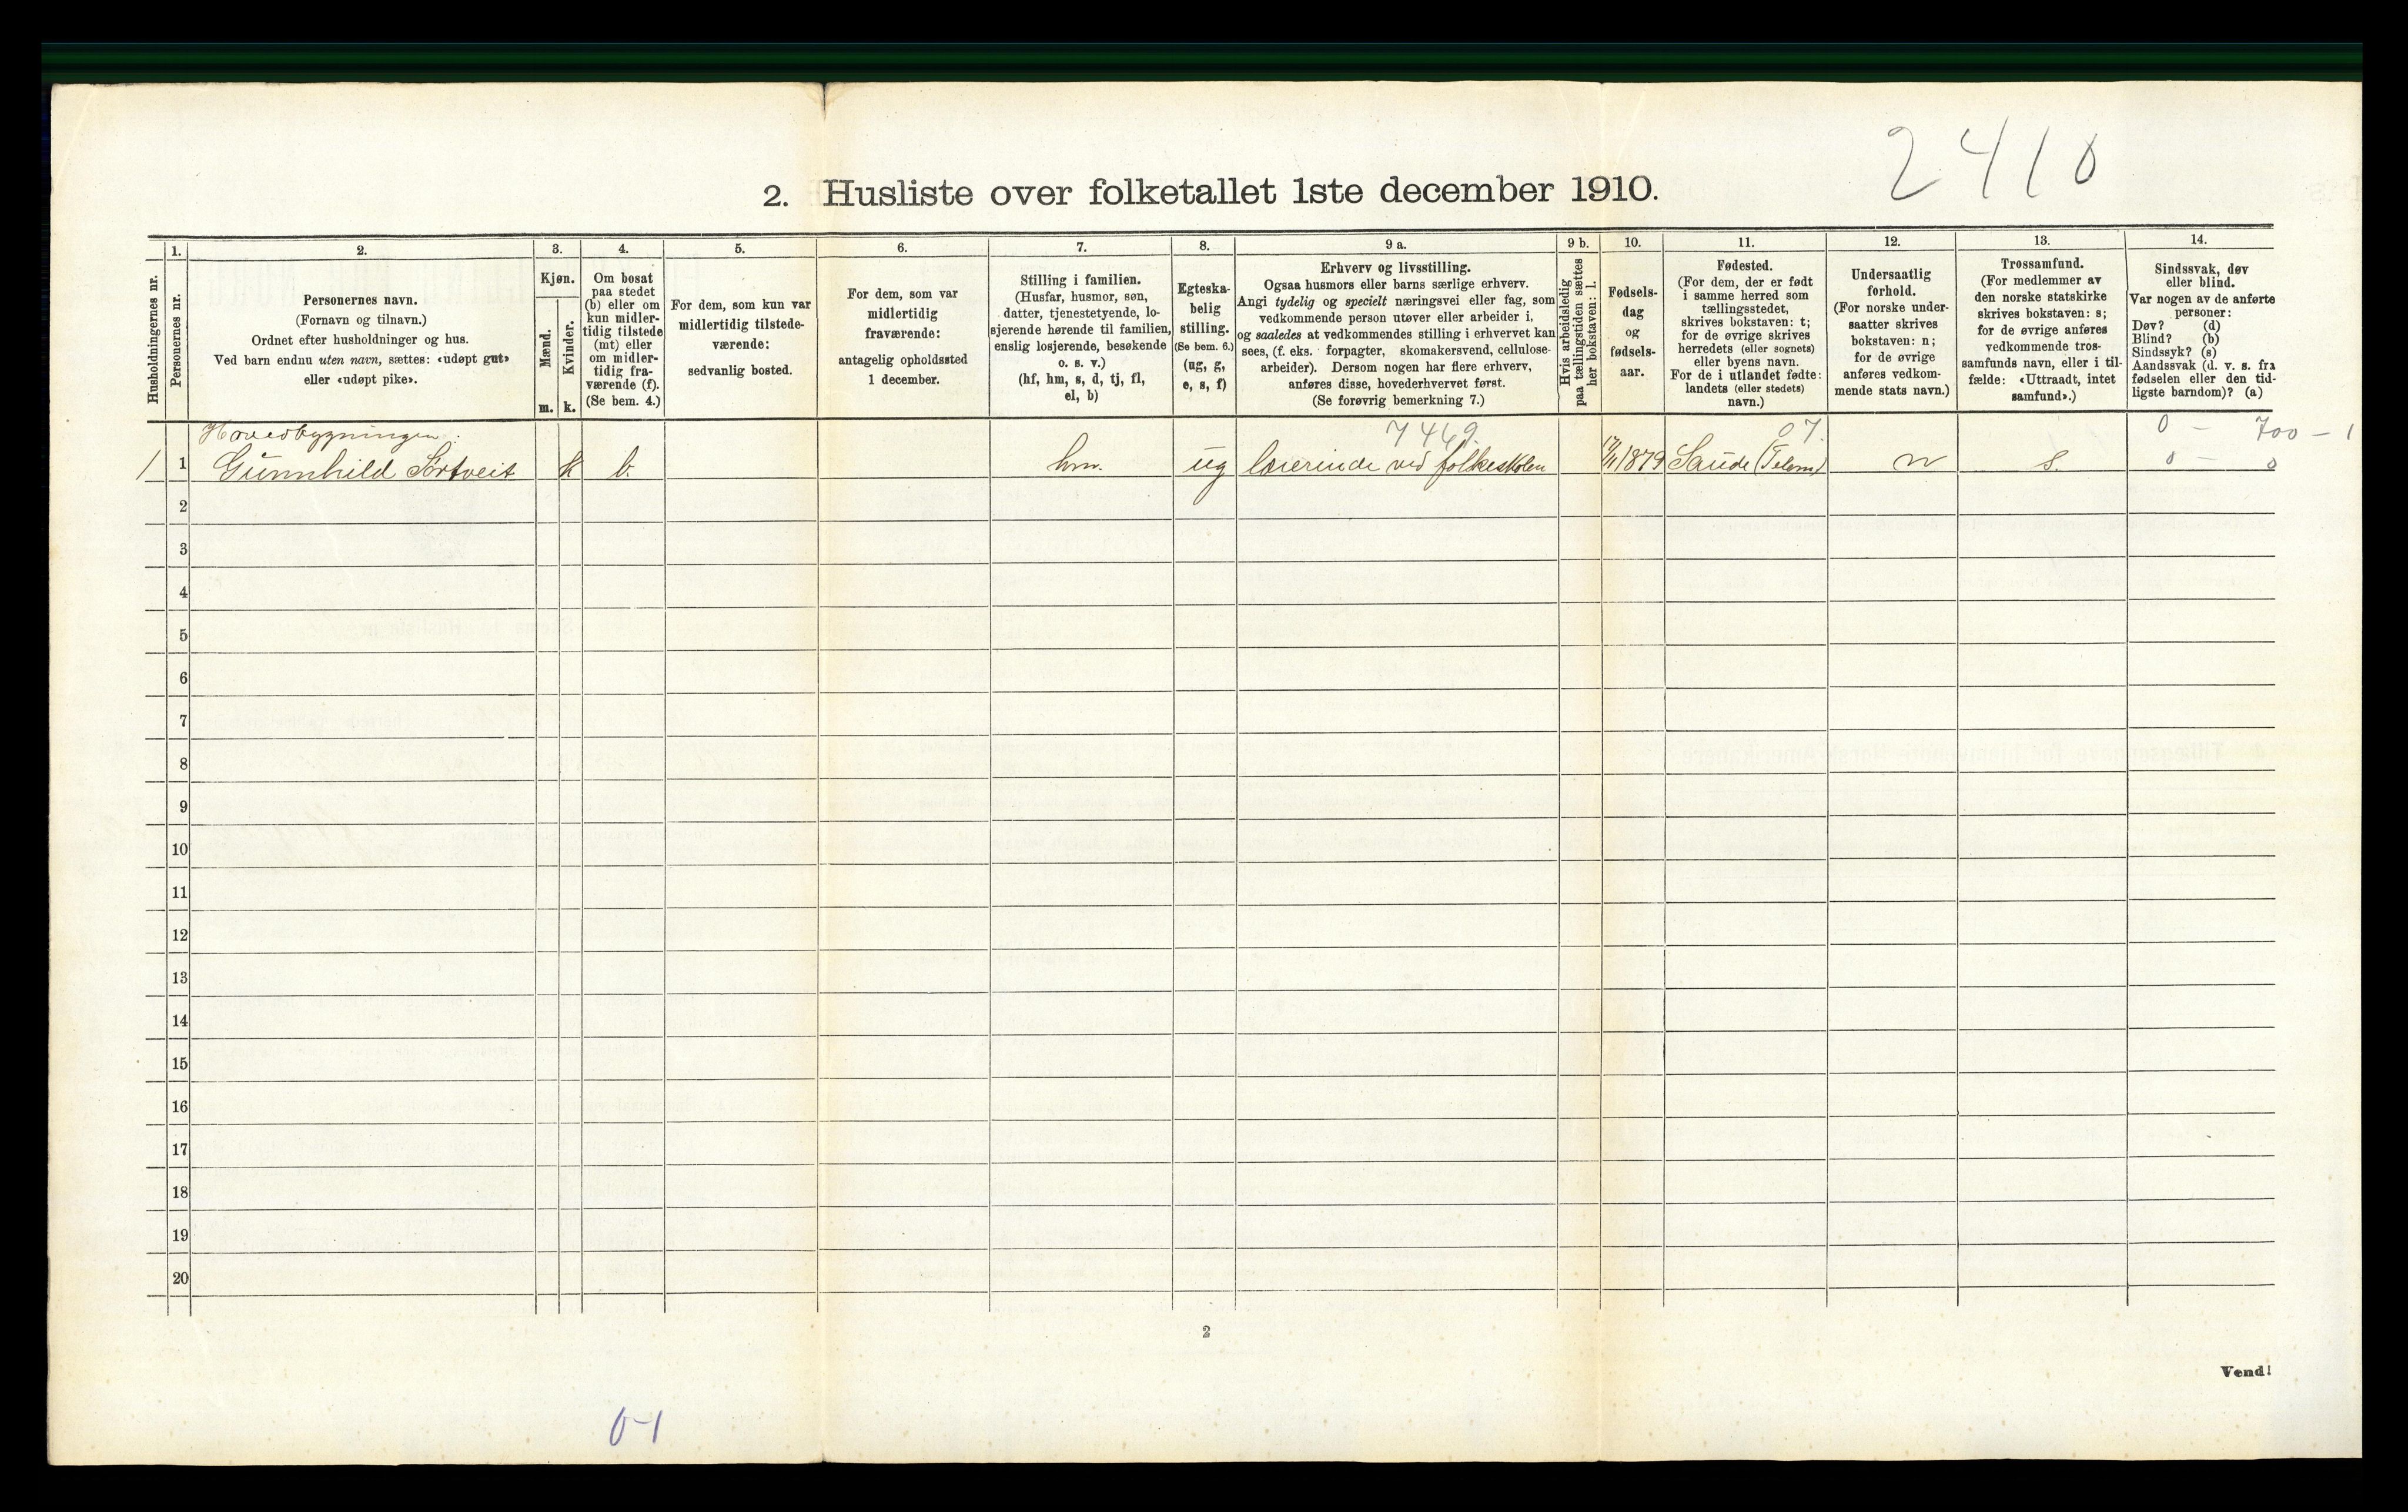 2410
2. Husliste over folketallet 1ste december 1910.
Husholdningernes nr.
1.
Personernes nr.
2.
Personernes navn.
(Fornavn og tilnavn.)
Ordnet efter husholdninger og hus.
Ved barn endnu uten navn, sættes: «udøpt gut»
eller «udøpt pike».
3.
Kjøn.
Mænd.
Kvinder.
m. k.
4.
Om bosat
paa stedet
(b) eller om
kun midler-
tidig tilstede
(mt) eller
om midler-
tidig fra-
værende (f).
(Se bem. 4.)
5.
For dem, som kun var
midlertidig tilstede-
værende:
sedvanlig bosted.
6.
For dem, som var
midlertidig
fraværende:
antagelig opholdssted
1 december.
7.
Stilling i familien.
(Husfar, husmor, søn,
datter, tjenestetyende, lo-
sjerende hørende til familien,
enslig losjerende, besøkende
o. s. v.)
(hf, hm, s, d, tj, fl,
el, b)
8.
Egteska-
belig
stilling.
(Se bem. 6.)
(ug, g,
e, s, f)
9 a.
Erhverv og livsstilling.
Ogsaa husmors eller barns særlige erhverv.
Angi tydelig og specielt næringsvei eller fag, som
vedkommende person utøver eller arbeider i,
og saaledes at vedkommendes stilling i erhvervet kan
sees, (f. eks. forpagter, skomakersvend, cellulose-
arbeider). Dersom nogen har flere erhverv,
anføres disse, hovederhvervet først.
(Se forøvrig bemerkning 7.)
9 b.
Hvis arbeidsledig
paa tællingstiden sættes
her bokstaven: l.
10.
Fødsels-
dag
og
fødsels-
aar.
11.
Fødested.
(For dem, der er født
i samme herred som
tællingsstedet,
skrives bokstaven: t;
for de øvrige skrives
herredets (eller sognets)
eller byens navn.
For de i utlandet fødte:
landets (eller stedets)
navn.)
12.
Undersaatlig
forhold.
(For norske under-
saatter skrives
bokstaven: n;
for de øvrige
anføres vedkom-
mende stats navn.)
13.
Trossamfund.
(For medlemmer av
den norske statskirke
skrives bokstaven: s;
for de øvrige anføres
vedkommende tros-
samfunds navn, eller i til-
fælde: «Uttraadt, intet
samfund».)
14.
Sindssvak, døv
eller blind.
Var nogen av de anførte
personer:
Døv? (d)
Blind? (b)
Sindssyk? (s)
Aandssvak (d. v. s. fra
fødselen eller den tid-
ligste barndom)? (a)
Hovedbygningen: 7469. 07. 0 - 700 - 1
1 1 Gunnhild Sørtveit k b. hm. ug lærerinde ved folkeskolen 1879 Saude (Telem) n s. 0 - 0
2
3
4
5
6
7
8
9
10
11
12
13
14
15
16
17
18
19
20
2
Vend!
0-1